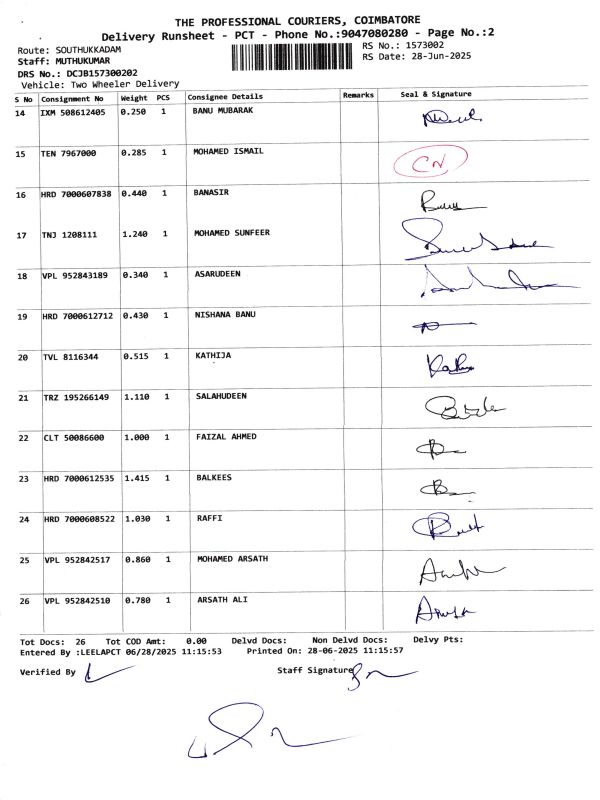 THE PROFESSIONAL COURIERS, COIMBATORE
Delivery Runsheet - PCT - Phone No.:9047080280 - Page No.:2
Route: SOUTHUKKADAM
RS No.: 1573002
Staff: MUTHUKUMAR
RS Date: 28-Jun-2025
DRS No.: DCJB157300202
Vehicle: Two Wheeler Delivery
S No Consignment No Weight PCS Consignee Details Remarks Seal & Signature
14 IXM 508612405 0.250 1 BANU MUBARAK
15 TEN 7967000 0.285 1 MOHAMED ISMAIL CN
16 HRD 7000607838 0.440 1 BANASIR
17 TNJ 1208111 1.240 1 MOHAMED SUNFEER
18 VPL 952843189 0.340 1 ASARUDEEN
19 HRD 7000612712 0.430 1 NISHANA BANU
20 TVL 8116344 0.515 1 KATHIJA
21 TRZ 195266149 1.110 1 SALAHUDEEN
22 CLT 50086600 1.000 1 FAIZAL AHMED
23 HRD 7000612535 1.415 1 BALKEES
24 HRD 7000608522 1.030 1 RAFFI
25 VPL 952842517 0.860 1 MOHAMED ARSATH
26 VPL 952842510 0.780 1 ARSATH ALI
Tot Docs: 26 Tot COD Amt: 0.00 Delvd Docs: Non Delvd Docs: Delvy Pts:
Entered By :LEELAPCT 06/28/2025 11:15:53 Printed On: 28-06-2025 11:15:57
Verified By Staff Signature